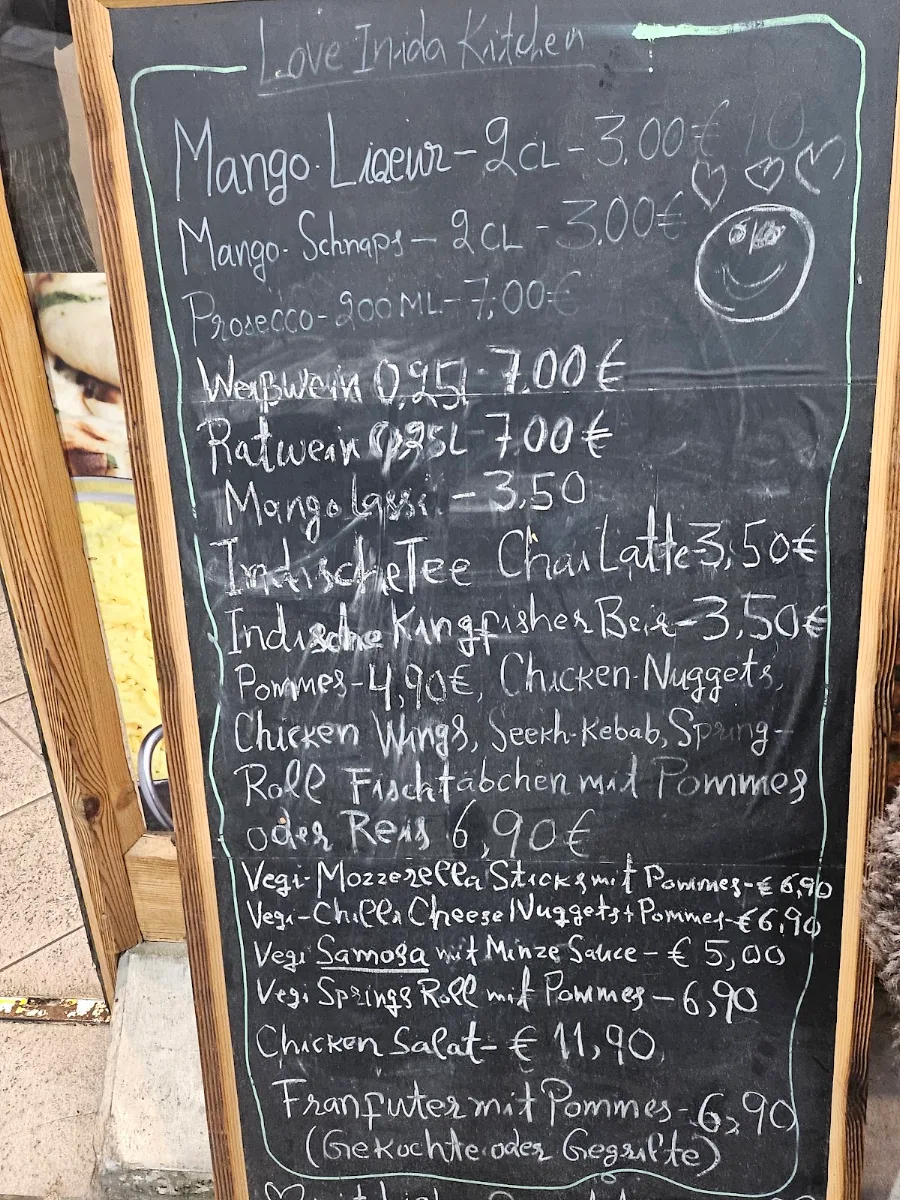 Love Inida Kitchen
Mango. Liqeur - 2CL - 3.00€
Mango. Schnaps - 2CL - 3.00€
Prosecco - 200ML - 7,00€
Weißwein 0,25l - 7.00€
Ratwein 0,25L 7.00€
Mango lassi - 3,50
Indische Tee Chai Latte 3,50€
Indische Kingfisher Beir - 3,50€
Pommes - 4,90€, Chicken-Nuggets,
Chicken Wings, Seekh-Kebab, Spring-
Roll Fischtäbchen mit Pommes
oder Reis 6,90€
Vegi-Mozzerella Sticks mit Pommes-€6,90
Vegi-Chilli Cheese Nuggets+Pommes-€6,90
Vegi Samosa mit Minze Sauce - € 5,00
Vegi Springs Roll mit Pommes - 6,90
Chicken Salat - € 11,90
Franfuter mit Pommes - 6,90
(Gekochte oder Gegrilte)